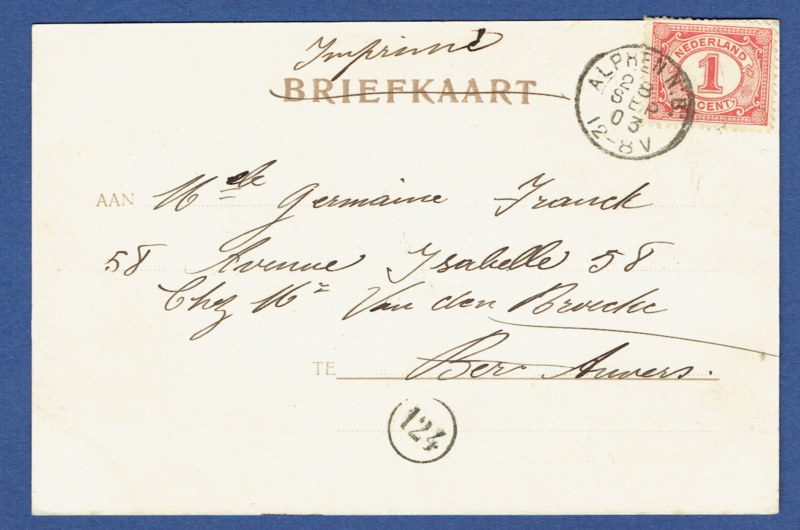 Imprimé
BRIEFKAART
NEDERLAND
1
CENT
ALPHEN (N.B)
28
SEP
03
12-8V
AAN Melle Germaine Franck
58 Avenue Isabelle 58
Chez Mr Van den Broecke
TE Anvers.
124